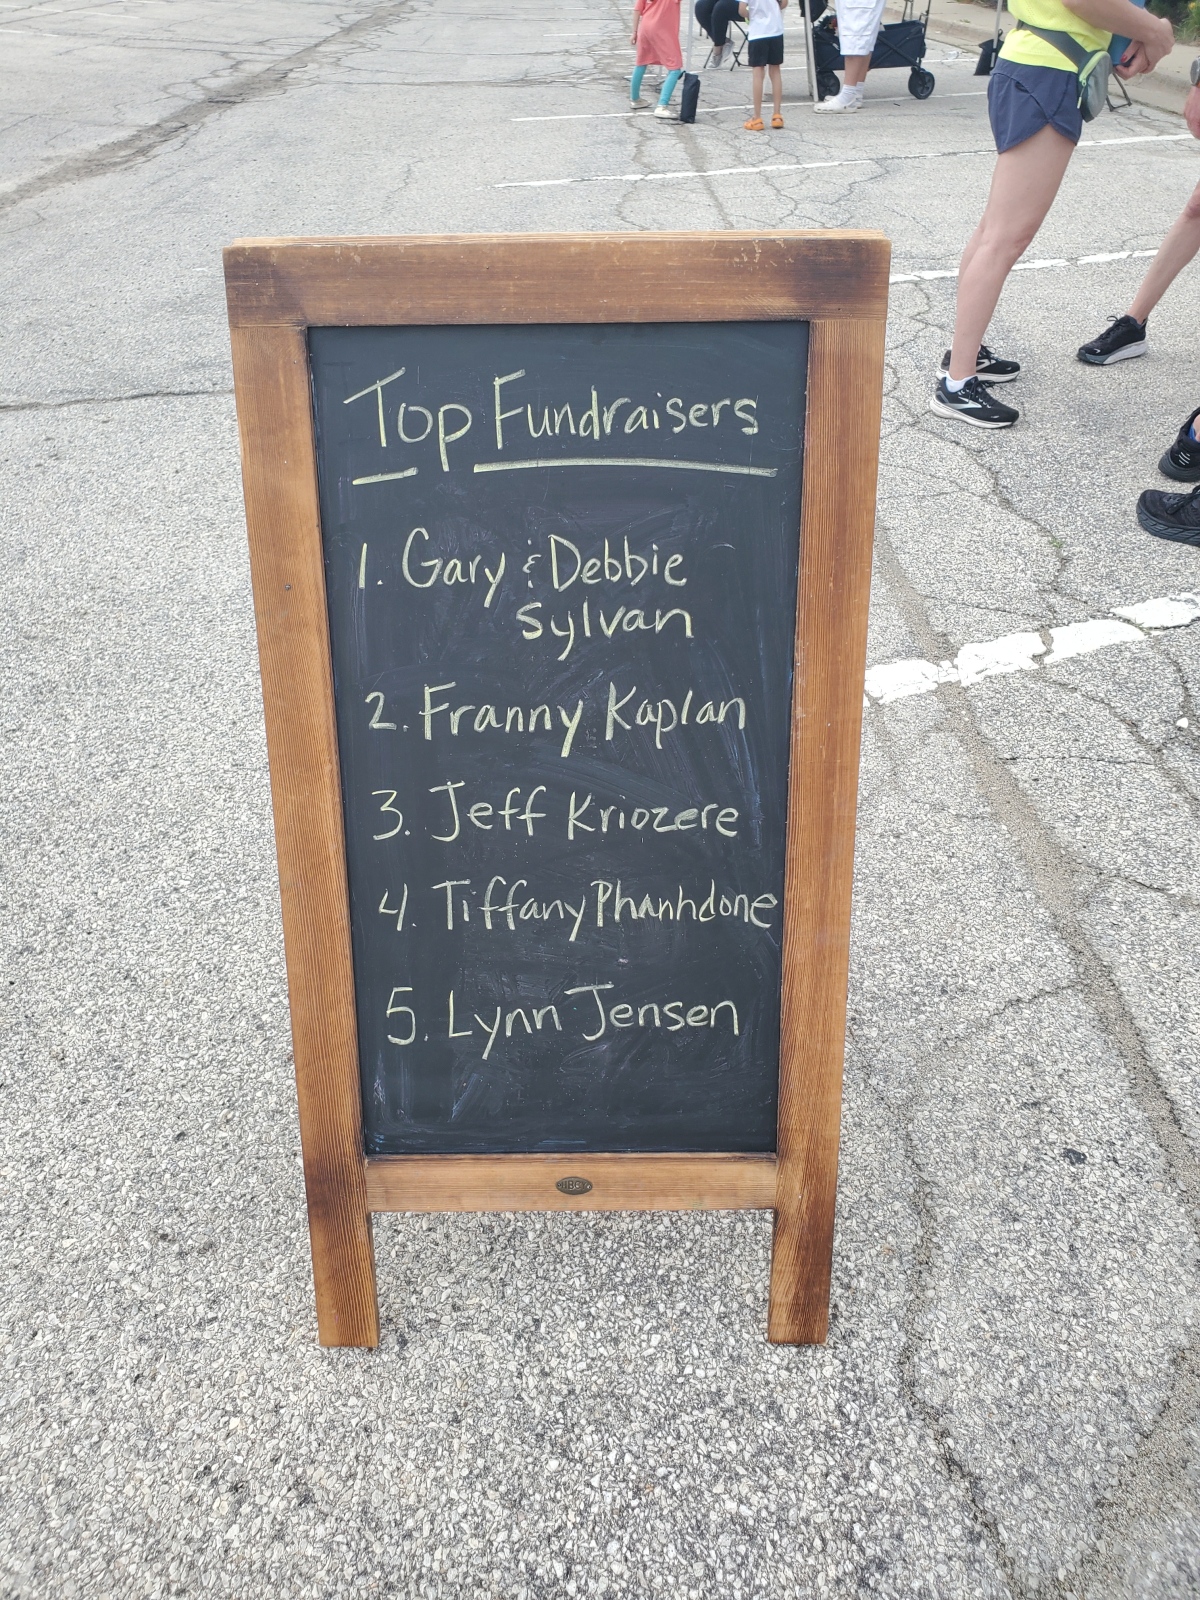 Top Fundraisers
1. Gary & Debbie
Sylvan
2. Franny Kaplan
3. Jeff Kriozere
4. Tiffany Phanhdone
5. Lynn Jensen